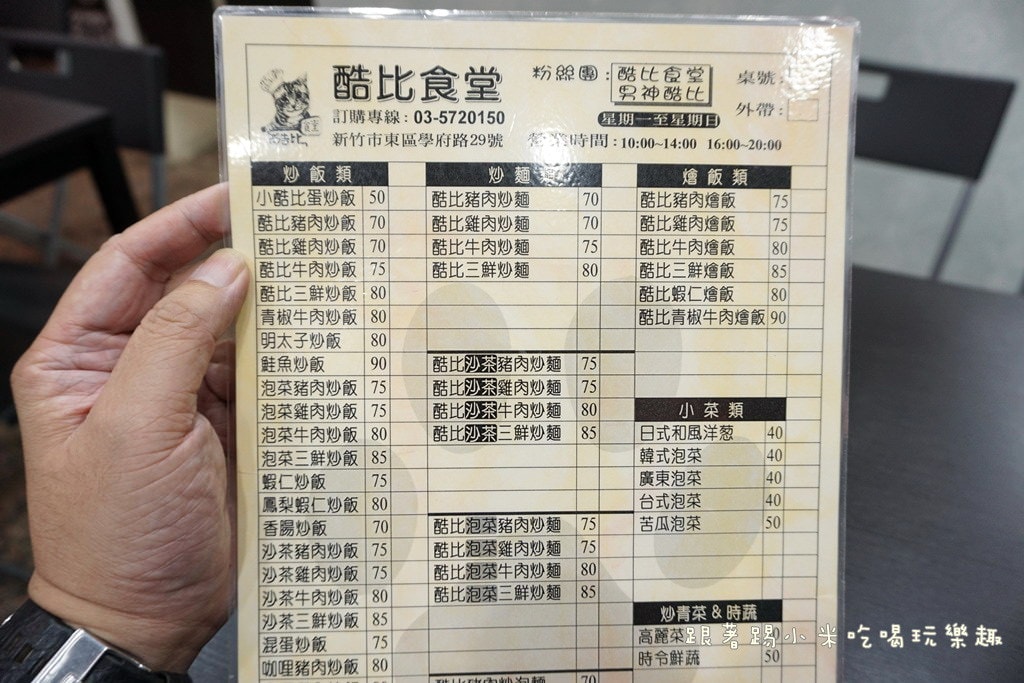 酷比食堂
訂購專線：03-5720150
新竹市東區學府路29號
粉絲團：酷比食堂
男神酷比
星期一至星期日
營業時間：10:00~14:00 16:00~20:00
桌號
外帶：
炒飯類
小酷比蛋炒飯 50
酷比豬肉炒飯 70
酷比雞肉炒飯 70
酷比牛肉炒飯 75
酷比三鮮炒飯 80
青椒牛肉炒飯 80
明太子炒飯 80
鮭魚炒飯 90
泡菜豬肉炒飯 75
泡菜雞肉炒飯 75
泡菜牛肉炒飯 80
泡菜三鮮炒飯 85
蝦仁炒飯 75
鳳梨蝦仁炒飯 80
香腸炒飯 70
沙茶豬肉炒飯 75
沙茶雞肉炒飯 75
沙茶牛肉炒飯 80
沙茶三鮮炒飯 85
混蛋炒飯 75
咖哩豬肉炒飯 80
炒麵類
酷比豬肉炒麵 70
酷比雞肉炒麵 70
酷比牛肉炒麵 75
酷比三鮮炒麵 80
酷比沙茶豬肉炒麵 75
酷比沙茶雞肉炒麵 75
酷比沙茶牛肉炒麵 80
酷比沙茶三鮮炒麵 85
酷比泡菜豬肉炒麵 75
酷比泡菜雞肉炒麵 75
酷比泡菜牛肉炒麵 80
酷比泡菜三鮮炒麵 85
酷比豬肉炒泡麵 70
燴飯類
酷比豬肉燴飯 75
酷比雞肉燴飯 75
酷比牛肉燴飯 80
酷比三鮮燴飯 85
酷比蝦仁燴飯 80
酷比青椒牛肉燴飯 90
小菜類
日式和風洋葱 40
韓式泡菜 40
廣東泡菜 40
台式泡菜 40
苦瓜泡菜 50
炒青菜&時蔬
高麗菜
時令鮮蔬 50
跟著踢小米吃喝玩樂趣